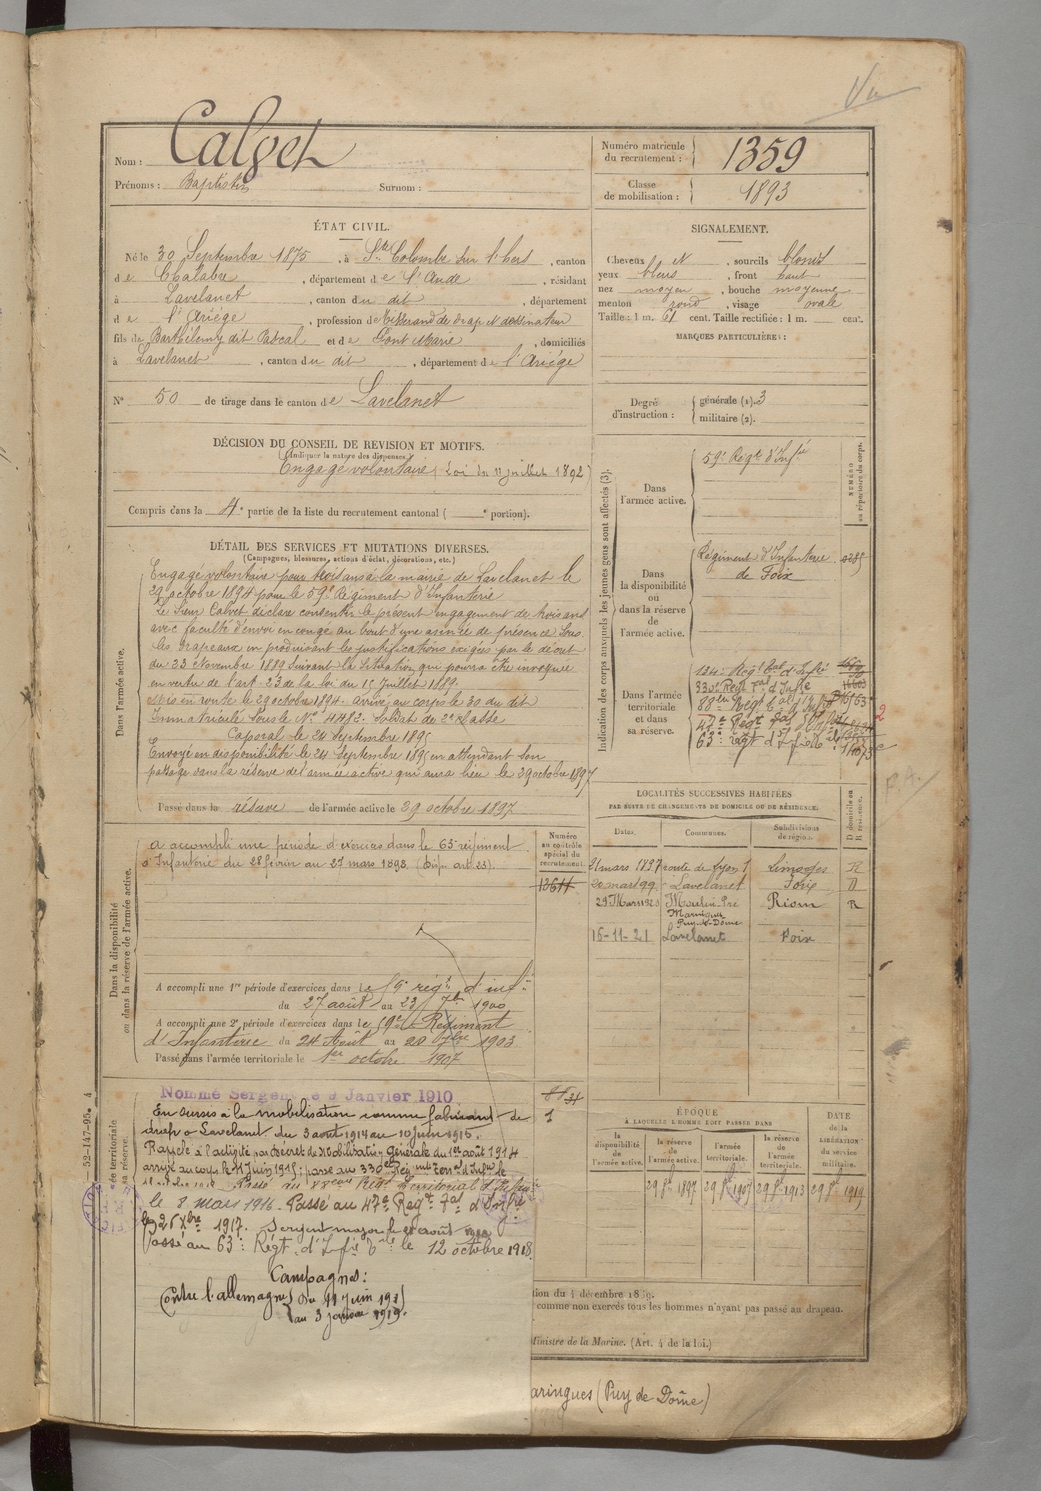 Vu
Nom : Calvet
Prénoms : Baptistin Surnom :
Numéro matricule du recrutement : 1359
Classe de mobilisation : 1893
ÉTAT CIVIL.
Né le 30 Septembre 1875, à Ste Colombe sur l'hers, canton
de Chalabre, département de l'Aude, résidant
à Lavelanet, canton du dit, département
de l'Ariége, profession de Tisserand de drap et dessinateur
fils de Barthélemy dit Pascal et de Pont Marie, domiciliés
à Lavelanet, canton du dit, département de l'Ariége
N° 50 de tirage dans le canton de Lavelanet
SIGNALEMENT.
Cheveux et, sourcils blonds
yeux bleus, front haut
nez moyen, bouche moyenne
menton rond, visage ovale
Taille : 1 m. 61 cent. Taille rectifiée : 1 m. cent.
MARQUES PARTICULIÈRES :
Degré d'instruction : générale (1). 3
militaire (2).
DÉCISION DU CONSEIL DE REVISION ET MOTIFS.
(Indiquer la nature des dispenses.)
Engagé volontaire (Loi du 11 juillet 1892)
Compris dans la 4e partie de la liste du recrutement cantonal ( e portion).
DÉTAIL DES SERVICES ET MUTATIONS DIVERSES.
(Campagnes, blessures, actions d'éclat, décorations, etc.)
Dans l'armée active.
Engagé volontaire pour trois ans à la mairie de Lavelanet le
29 octobre 1894 pour le 59e Régiment d'Infanterie
Le Sieur Calvet déclare consentir le présent engagement de trois ans
avec faculté d'envoi en congé au bout d'une année de présence sous
les drapeaux en produisant les justifications exigées par le décret
du 23 Novembre 1889 suivant la situation qui pourra être invoquée
en vertu de l'art. 23 de la loi du 15 Juillet 1889.
Mis en route le 29 octobre 1894. Arrivé au corps le 30 du dit
Immatriculé sous le N° 4412. Soldat de 2e classe
Caporal le 24 Septembre 1895
Envoyé en disponibilité le 24 Septembre 1895 en attendant son
passage dans la réserve de l'armée active qui aura lieu le 29 octobre 1897
Passé dans la réserve de l'armée active le 29 octobre 1897
Indication des corps auxquels les jeunes gens sont affectés (3).
NUMÉRO au répertoire du corps.
Dans l'armée active.
59e Régt d'Infie
Dans la disponibilité ou dans la réserve de l'armée active.
Régiment d'Infanterie de Foix
Dans l'armée territoriale et dans sa réserve.
134e Régt tal d'Infie
330e Régt tal d'Infie
88e Régt tal d'Infie
47e Régt tal d'Infie
63e régt d'Infie
LOCALITÉS SUCCESSIVES HABITÉES
PAR SUITE DE CHANGEMENTS DE DOMICILE OU DE RÉSIDENCE.
D domicile ou R résidence.
Dates. Communes. Subdivisions de région.
21 mars 1897 route de Lyon 1 Limoges R
20 mars 99 Lavelanet Foix D
29 Mars 1920 Moulin Pré Maringues Puy-de-Dôme Riom R
16-11-21 Lavelanet Foix
Dans la disponibilité ou dans la réserve de l'armée active.
Numéro au contrôle spécial du recrutement.
a accompli une période d'exercices dans le 63e régiment
d'Infanterie du 28 février au 27 mars 1898 (Disp. art. 23).
A accompli une 1re période d'exercices dans le 59e régt d'infie
du 27 août au 23 7bre 1900
A accompli une 2e période d'exercices dans le 59e Régiment
d'Infanterie du 24 Août au 20 7bre 1903
Passé dans l'armée territoriale le 1er octobre 1907
Nommé Sergent le 9 Janvier 1910
En sursis à la mobilisation comme fabricant de
draps à Lavelanet du 3 août 1914 au 10 juin 1915.
Rappelé à l'activité par Décret de Mobilisation Générale du 1er août 1914
arrivé au corps le 11 Juin 1915; passé au 330e Régiment terral d'Infie le
Passé au 88eme Régt Territorial d'Infie
le 8 mars 1916. Passé au 47e Régt Tal d'Infie
le 26 Xbre 1917. Sergent major le août
Passé au 63e Régt d'Infie tale le 12 octobre 1918.
Campagnes :
Contre l'allemagne du 11 Juin 1915
au 3 janvier 1919.
ÉPOQUE
À LAQUELLE L'HOMME DOIT PASSER DANS
DATE de la LIBÉRATION du service militaire.
la disponibilité de l'armée active. la réserve de l'armée active. l'armée territoriale. la réserve de l'armée territoriale.
29 8bre 1897 29 8bre 1907 29 8bre 1913 29 8bre 1919
comme non exercés tous les hommes n'ayant pas passé au drapeau.
Ministre de la Marine. (Art. 4 de la loi.)
aringues (Puy de Dôme)